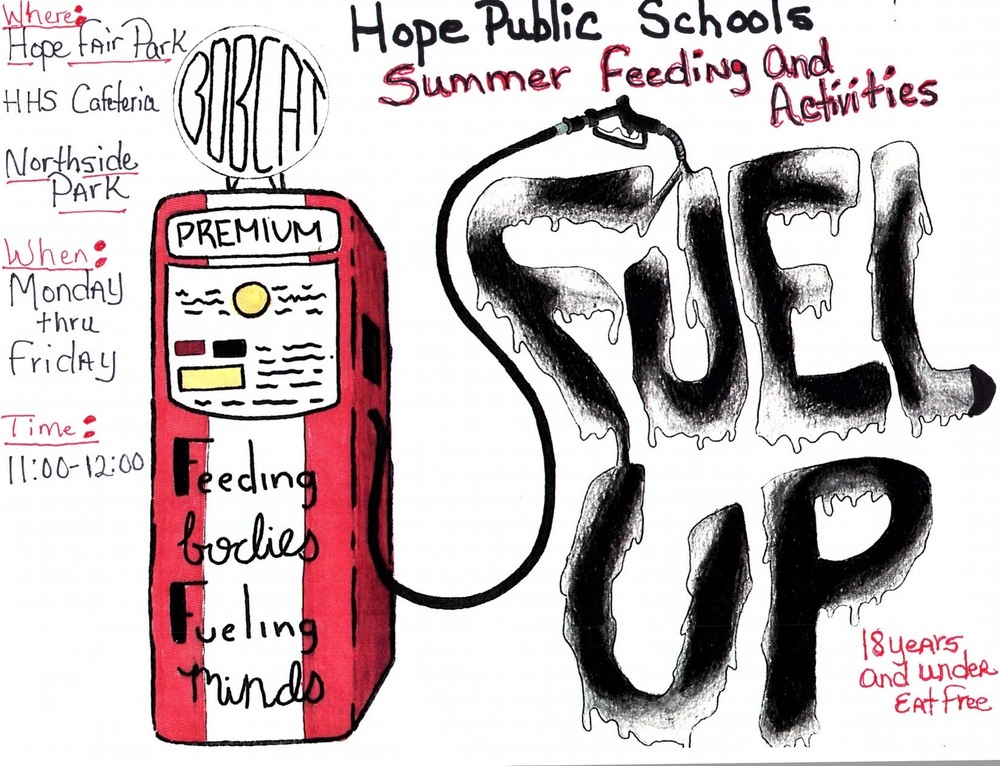 Hope Public Schools
Summer Feeding and
Activities
Where:
Hope Fair Park
HHS Cafeteria
Northside
Park
When:
Monday
thru
Friday
Time:
11:00-12:00
BOBCAT
PREMIUM
Feeding
bodies
Fueling
minds
FUEL
UP
18 years
and under
Eat Free